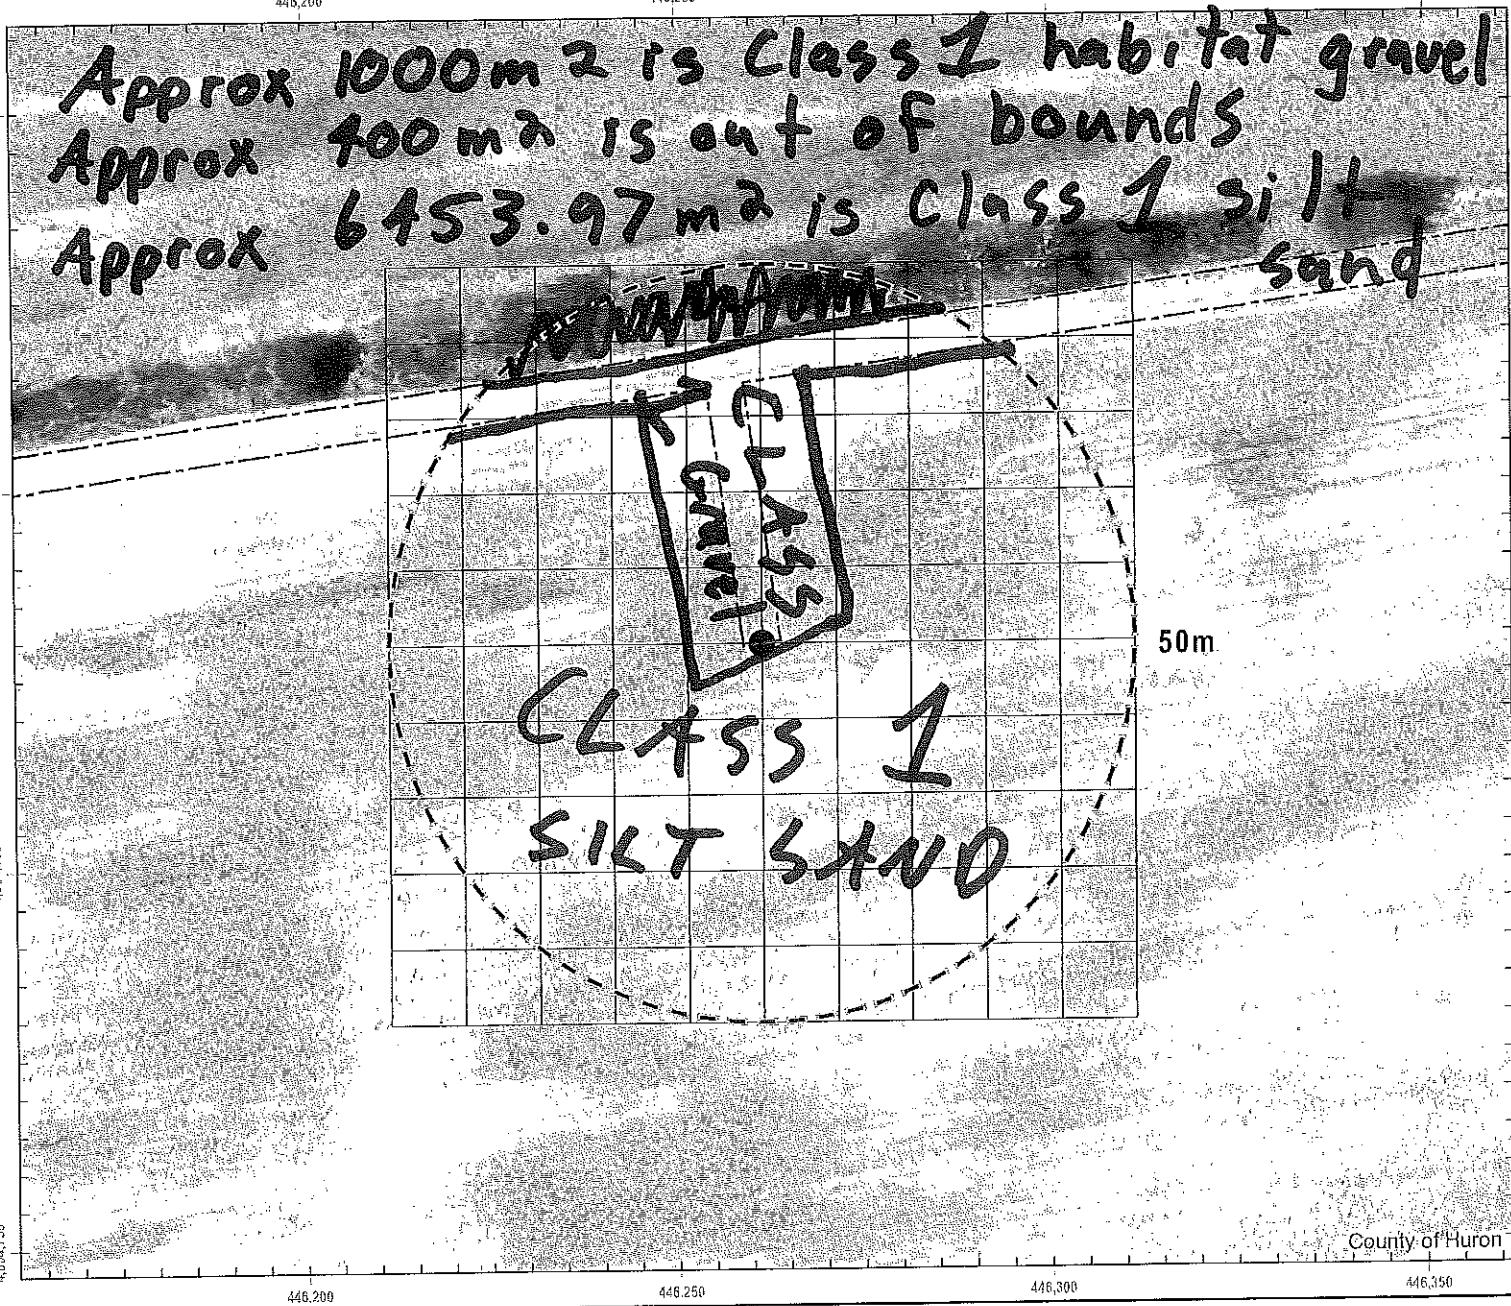 446,200
Approx 1000m2 is Class 1 habitat gravel
Approx 400m2 is out of bounds
Approx 6453.97m2 is Class 1 silt
sand
CLASS
Gravel
50m
CLASS 1
SILT SAND
County of Huron
446,200 446,250 446,300 446,350